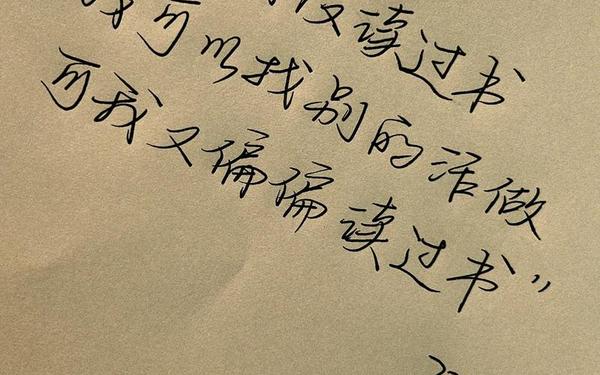 没读过书
我可以找别的活做
可我又偏偏读过书”